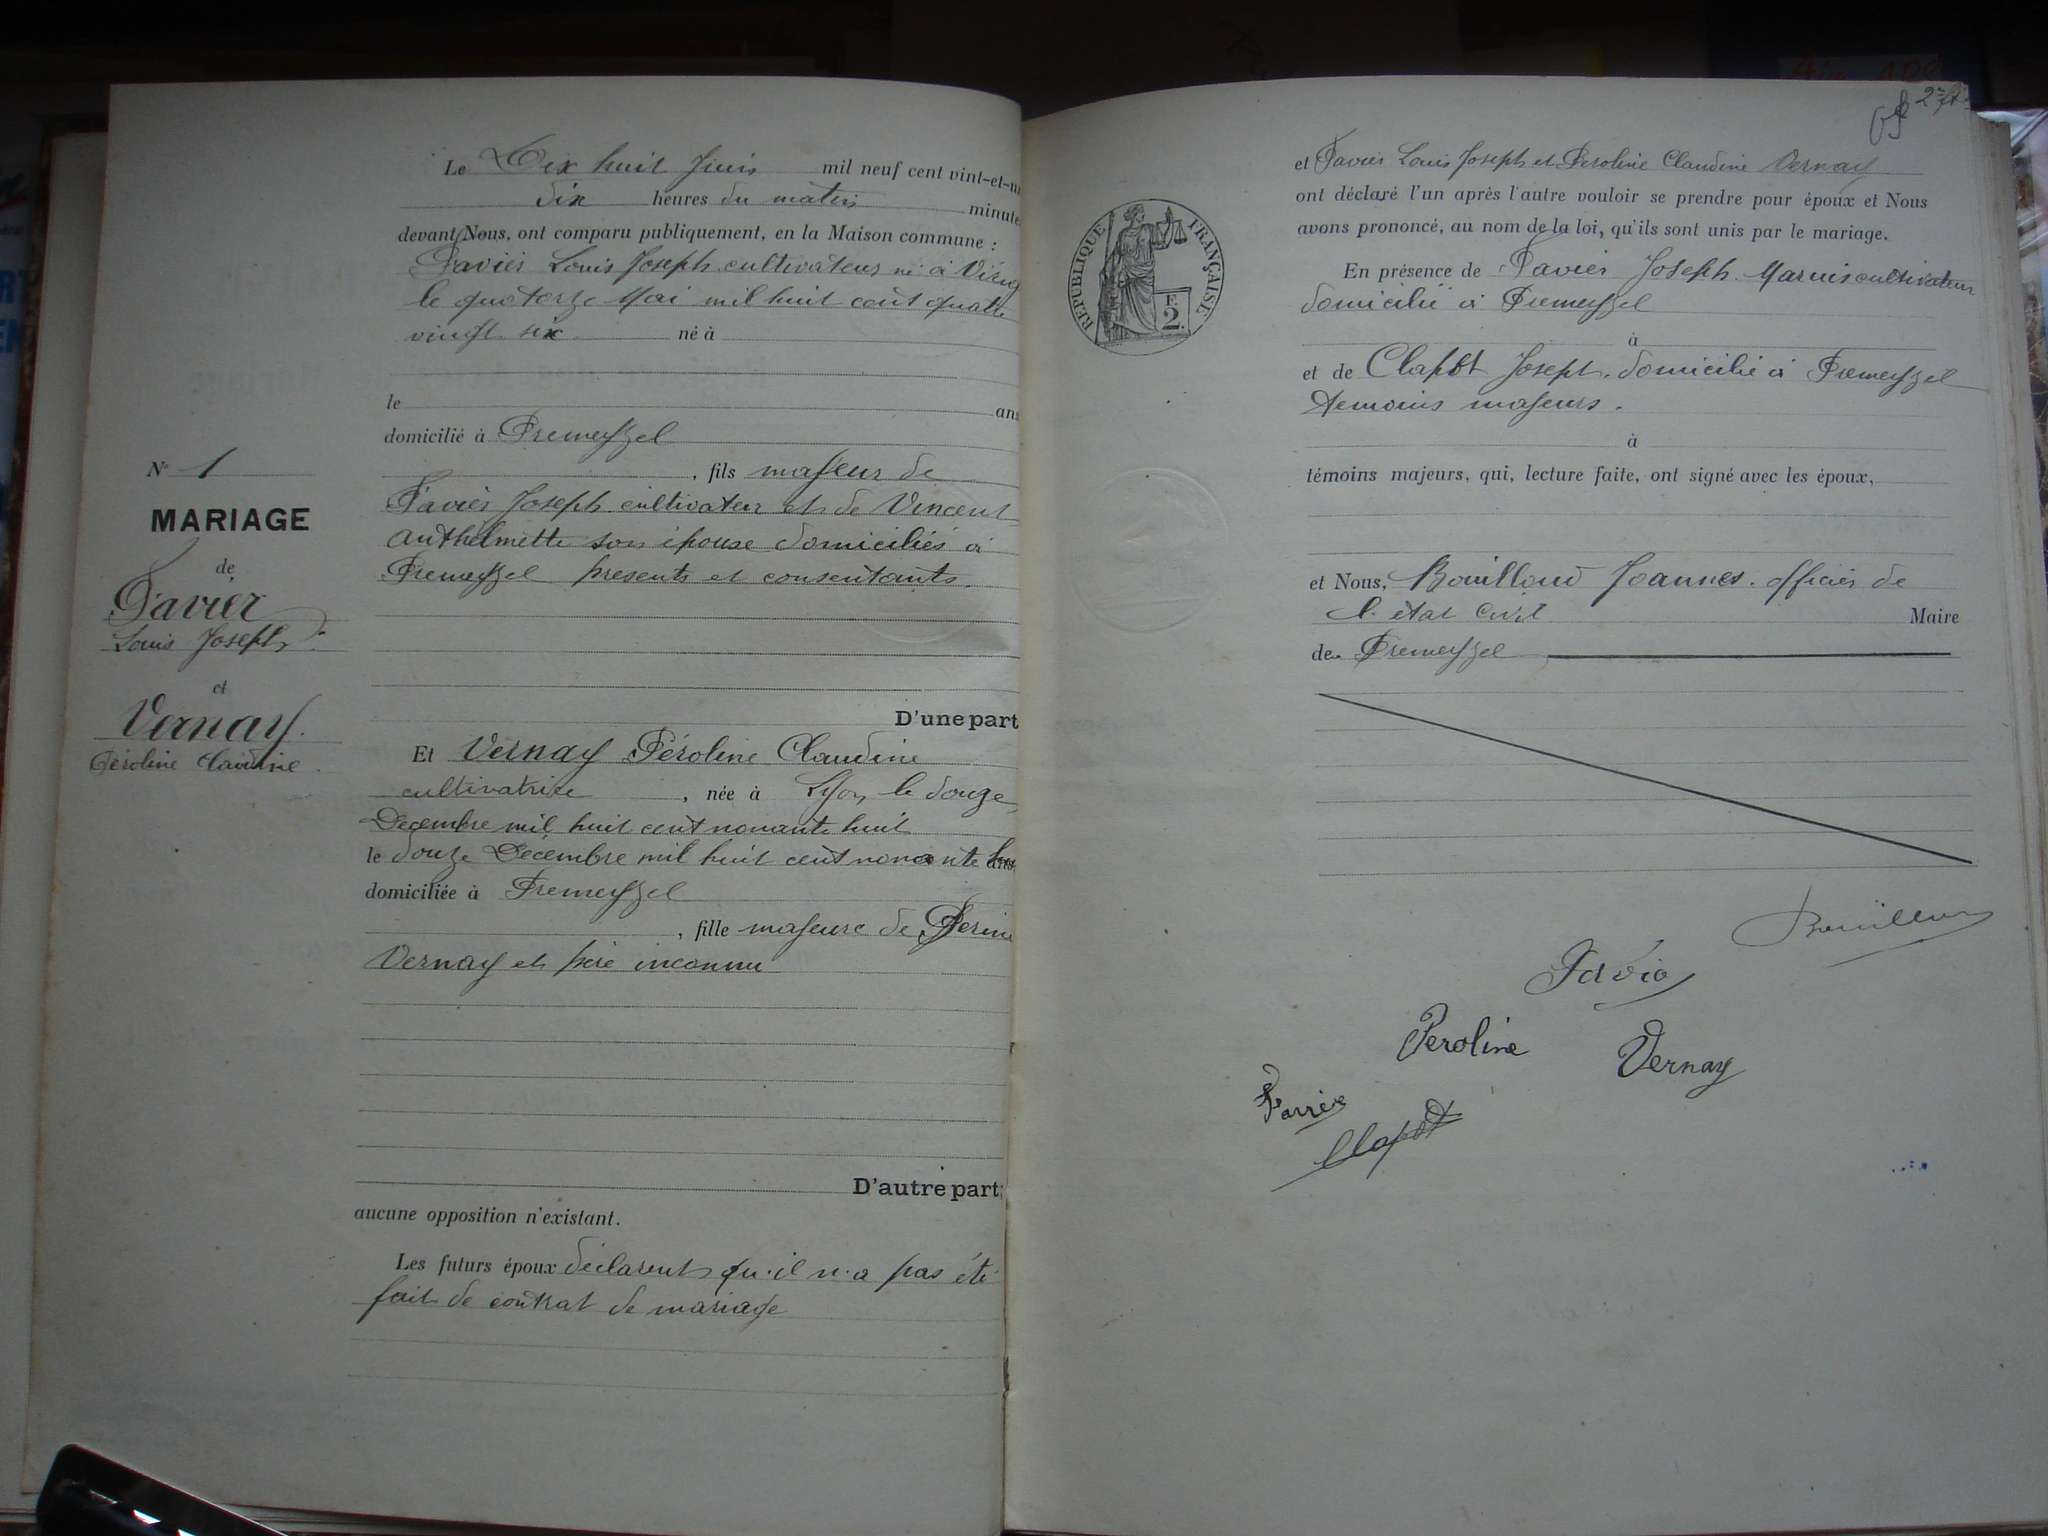 Le Dix huit Juin mil neuf cent vint-et-un
dix heures du matin minute
devant Nous, ont comparu publiquement, en la Maison commune :
Pavier Louis Joseph cultivateur né à
le quatorze Mai mil huit cent quatre
vingt six né à
le ans
domicilié à Premeyzel
, fils majeur de
Pavier Joseph cultivateur et de Vincent
Anthelmette son épouse domiciliés à
Premeyzel presents et consentants.
N° 1
MARIAGE
de
Pavier
Louis Joseph
et
Vernay.
Péroline Claudine
D'une part
Et Vernay Péroline Claudine
cultivatrice , née à Lyon le douze
Decembre mil huit cent nonante huit
le douze Décembre mil huit cent nonante ans
domiciliée à Premeyzel
, fille majeure de
Vernay et père inconnu
D'autre part;
aucune opposition n'existant.
Les futurs époux déclarent qu'il n'a pas été
fait de contrat de mariage
2
et Pavier Louis Joseph et Peroline Claudine Vernay
ont déclaré l'un après l'autre vouloir se prendre pour époux et Nous
avons prononcé, au nom de la loi, qu'ils sont unis par le mariage.
RÉPUBLIQUE FRANÇAISE
F.
2.
En présence de Pavier Joseph Marius cultivateur
domicilié à Premeyzel
à
et de Clapot Joseph. domicilié à Premeyzel
temoins majeurs.
à
témoins majeurs, qui, lecture faite, ont signé avec les époux,
et Nous, Bouilloud Joannes. officier de
l'état civil Maire
de Premeyzel
Peroline Vernay
Clapot